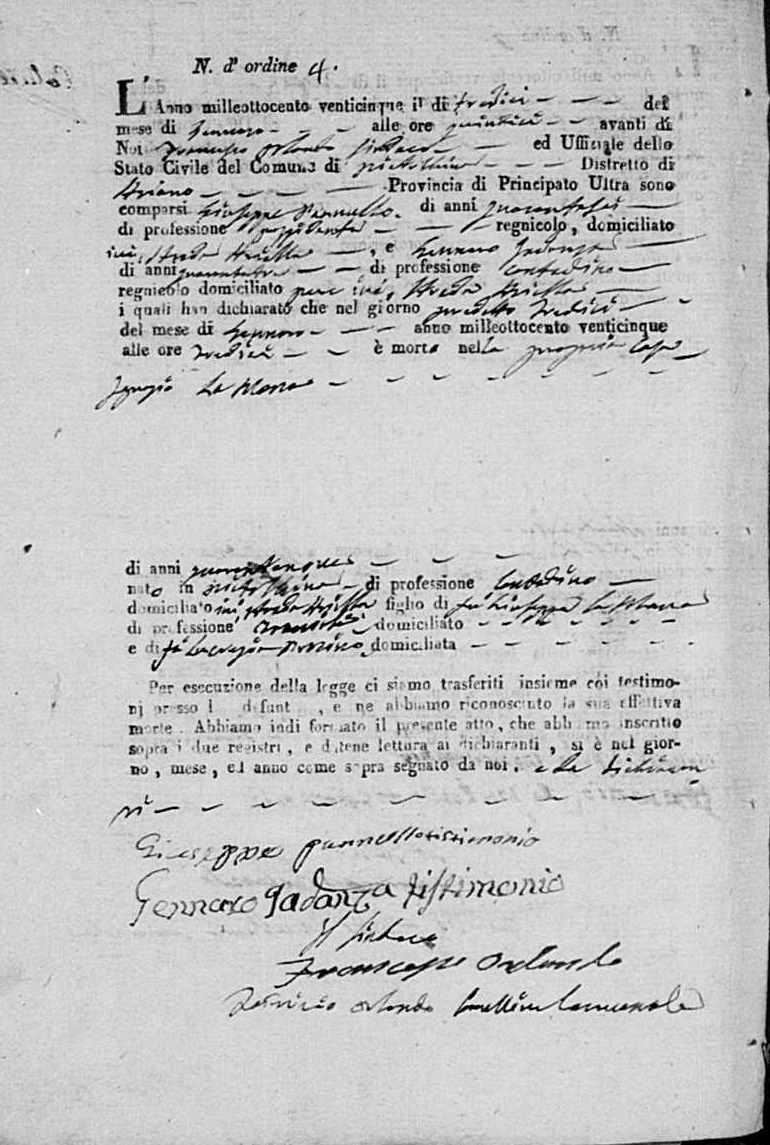 N. d' ordine 4.
L' Anno milleottocento venticinque il di tredici del
mese di Gennaro alle ore quindici avanti di
Noi Francesco Orlando Sindaco ed Uffiziale dello
Stato Civile del Comune di Distretto di
Ariano Provincia di Principato Ultra sono
comparsi Giuseppe Pannullo di anni quarantasei
di professione regnicolo, domiciliato
ivi, strada, e Gennaro Gadanza
di anni quarantatre di professione contadino
regnicolo domiciliato pure ivi, strada
i quali han dichiarato che nel giorno predetto tredici
del mese di Gennaro anno milleottocento venticinque
alle ore tredici è morto nella propria casa
La Marra
di anni
nato in di professione contadino
domiciliato ivi strada figlio di fu Giuseppe La Marra
di professione domiciliato
e di fu domiciliata
Per esecuzione della legge ci siamo trasferiti insieme coi testimo-
nj presso l defunt , e ne abbiamo riconosciuto la sua effettiva
morte. Abbiamo indi formato il presente atto, che abbiamo inscritto
sopra i due registri, e datene lettura ai dichiaranti, si è nel gior-
no, mese, ed anno come sopra segnato da noi. e da dichiaran
ti
Giuseppe pannullo tistimonio
Gennaro gadanza tistimonio
il Sindaco
Francesco Orlando
Orlando Cancelliere Comunale